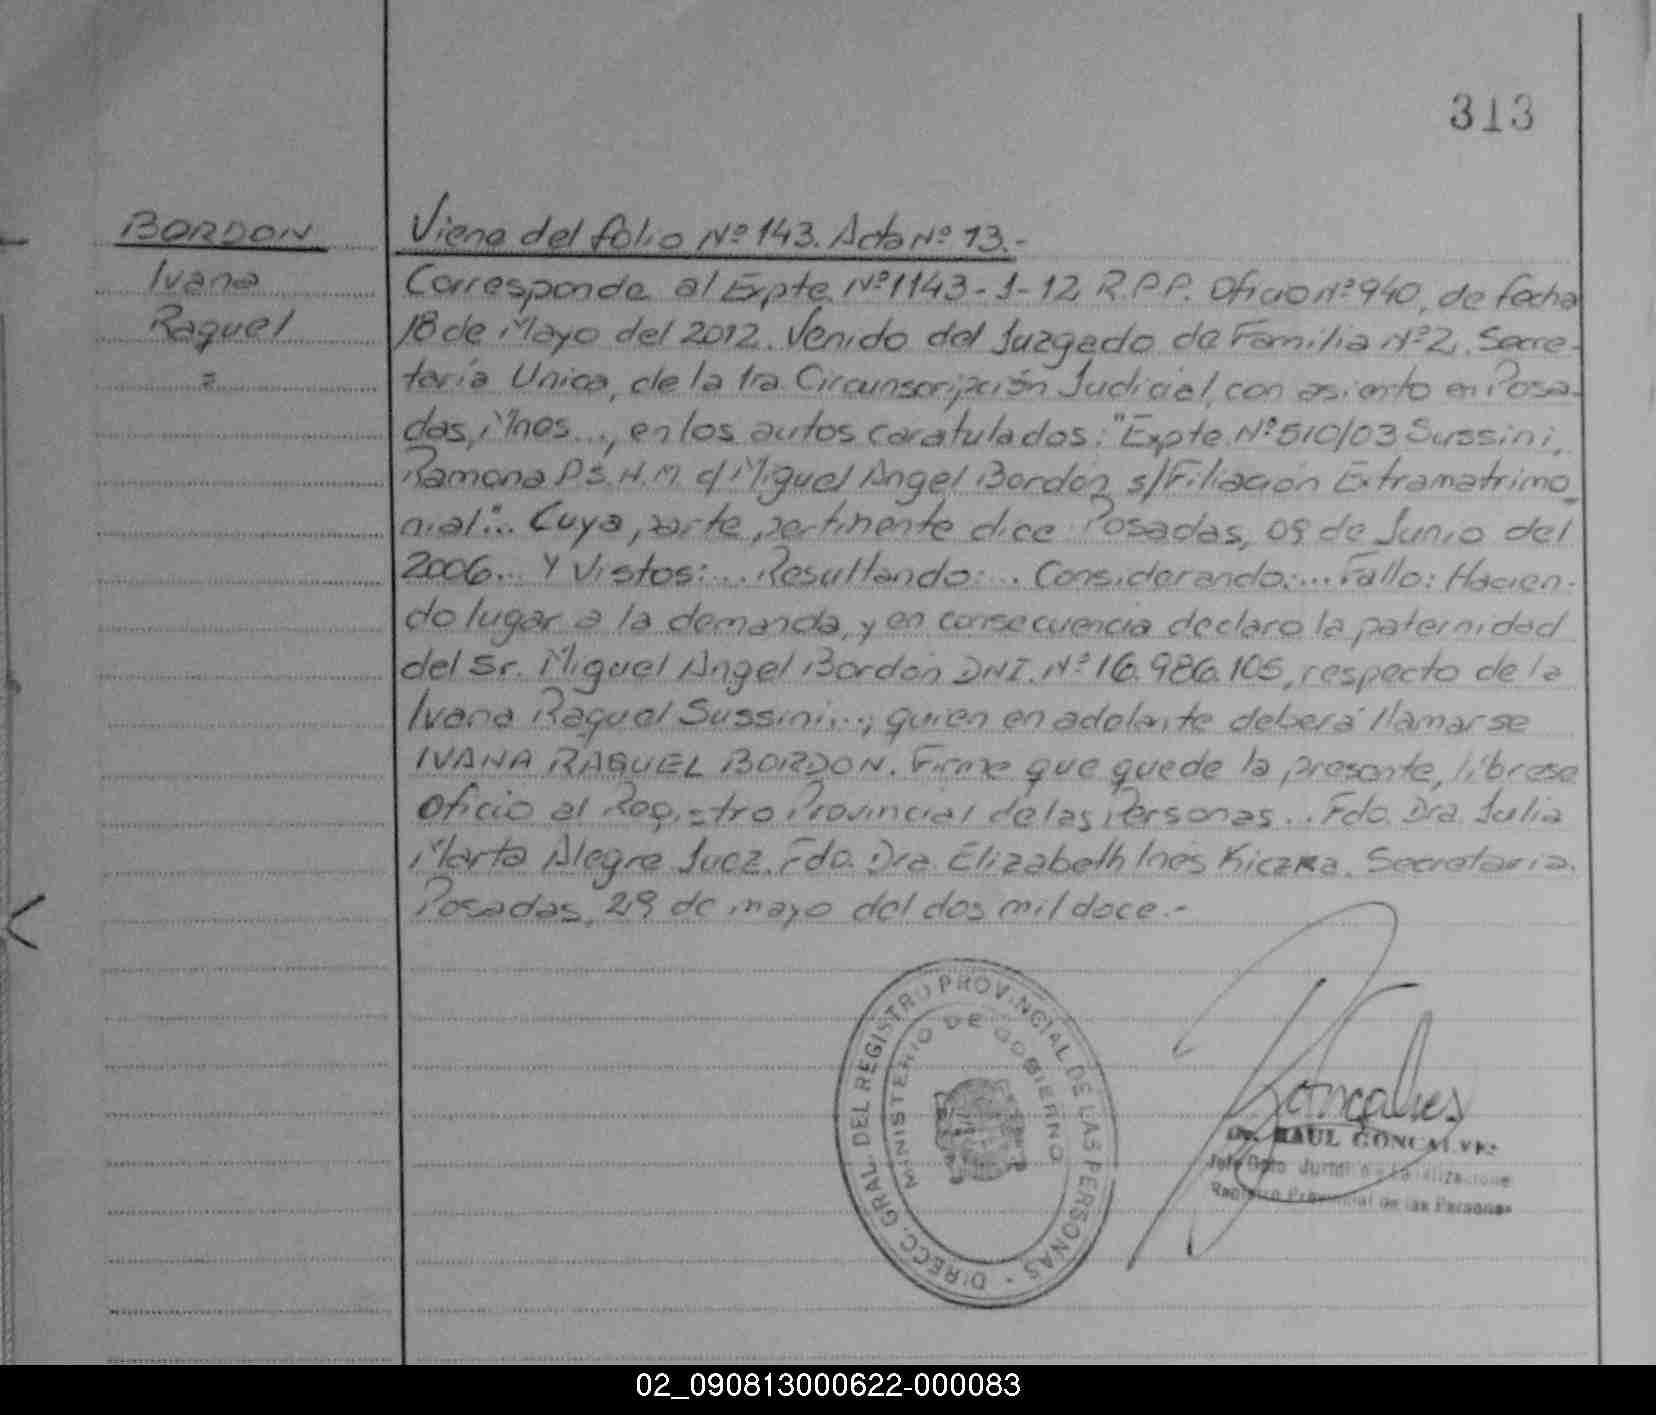 313
BORDON
Ivana
Raquel
=
Viene del folio Nº 143. Acta Nº 13.-
Corresponde al Expte. Nº 1143-1-12 R.P.P. Oficio Nº 940, de fecha
18 de Mayo del 2012. Venido del Juzgado de Familia Nº 2, Secre-
taría Unica, de la 1ra Circunscripción Judicial, con asiento en Posa-
das, Mnes..., en los autos caratulados: "Expte. Nº 510/03 Sussini,
Ramona P.S.H.M. c/ Miguel Angel Bordón s/Filiación Extramatrimo-
nial"... Cuya parte pertinente dice Posadas, 09 de Junio del
2006... Y Vistos:... Resultando:... Considerando:... Fallo: Hacien-
do lugar a la demanda, y en consecuencia declaro la paternidad
del Sr. Miguel Angel Bordón DNI. Nº 16.986.105, respecto de la
Ivana Raquel Sussini..., quien en adelante deberá llamarse
IVANA RAQUEL BORDON. Firme que quede la presente, líbrese
oficio al Registro Provincial de las Personas... Fdo. Dra. Julia
Marta Alegre Juez. Fdo. Dra. Elizabeth Inés Kiczka. Secretaria.
Posadas, 29 de mayo del dos mil doce.-
DIRECC. GRAL. DEL REGISTRO PROVINCIAL DE LAS PERSONAS
MINISTERIO DE GOBIERNO
Goncalves
Dr. RAUL GONCALVES
Jefe Dpto
Registro Provincial de las Personas
02_090813000622-000083